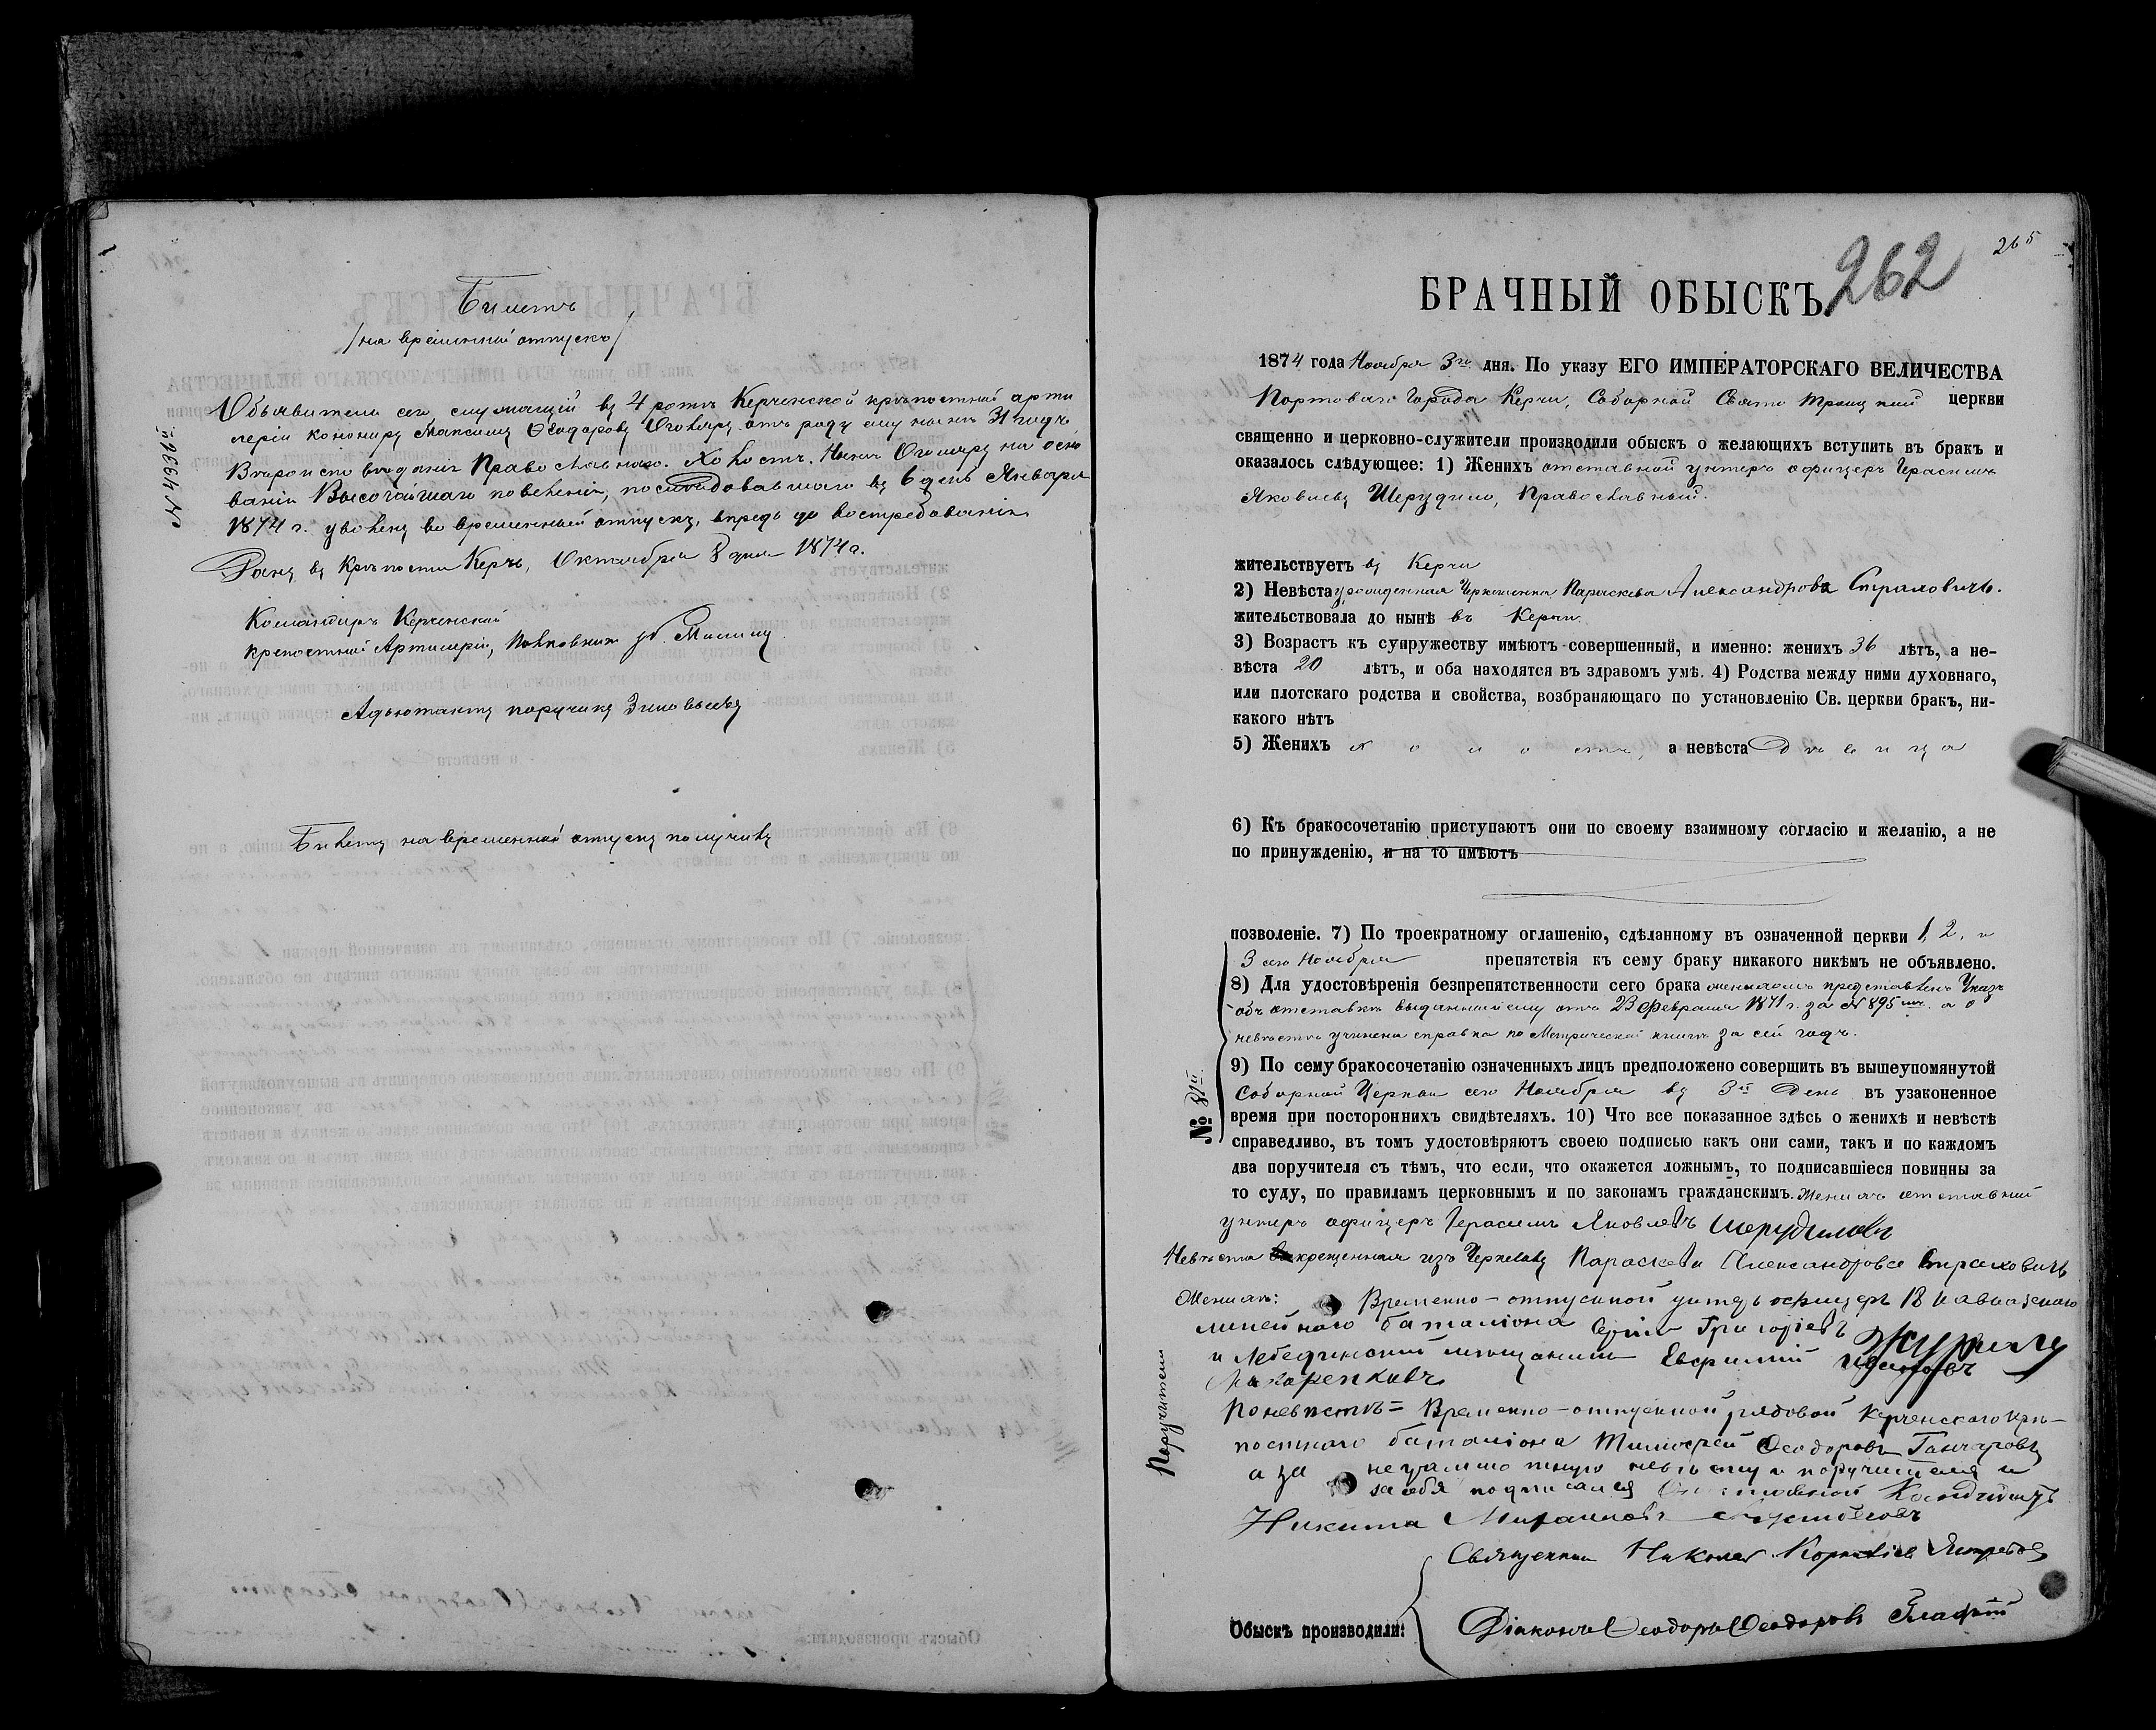 Билетъ
/на временный отпускъ/
Объявитель сего, служащій въ 4 ротѣ Керченской крѣпостной арти
леріи канониръ Максимъ Ѳеодоровъ отъ роду ему нынѣ 31 годъ,
Вѣроисповѣданія Православнаго. Холостъ. Нынѣ на осно
ваніи Высочайшаго повеленія, последовавшаго въ 6 день Января
1874 г. уволенъ во временный отпускъ, впредь до востребованія
Данъ въ Крѣпости Керчь, Октября 8 дня 1874 г.
Командиръ Керченской
крепостной Артилеріи, Полковникъ
Адъютантъ поручикъ Зиновьевъ
Билетъ на временный отпускъ получилъ
№ 4936й
265
262
БРАЧНЫЙ ОБЫСКЪ
1874 года Ноября 3го дня. По указу ЕГО ИМПЕРАТОРСКАГО ВЕЛИЧЕСТВА
Портоваго Города Керчи, Соборной Свято Троицкой церкви
священно и церковно-служители производили обыскъ о желающихъ вступить въ бракъ и
оказалось слѣдующее: 1) Женихъ отставной унтеръ офицеръ Герасимъ
Яковлевъ Шерудило, Православный.
жительствуетъ въ Керчи
2) Невѣста Параскева Александрова Страховичь.
жительствовала до нынѣ въ Керчи
3) Возрастъ къ супружеству имѣютъ совершенный, и именно: женихъ 36 лѣтъ, а не-
вѣста 20 лѣтъ, и оба находятся въ здравомъ умѣ. 4) Родства между ними духовнаго,
или плотскаго родства и свойства, возбраняющаго по установленію Св. церкви бракъ, ни-
какого нѣтъ
5) Женихъ холостъ, а невѣста Дѣвица
6) Къ бракосочетанію приступаютъ они по своему взаимному согласію и желанію, а не
по принужденію, и на то имѣютъ
позволеніе. 7) По троекратному оглашенію, сдѣланному въ означенной церкви 1, 2, и
3 сего Ноября препятствія къ сему браку никакого никѣмъ не объявлено.
8) Для удостовѣренія безпрепятственности сего брака женихомъ представленъ Указъ
объ отставкѣ выданный ему отъ 23 Февраля 1871 г. за № 895мъ. а о
невѣстѣ учинена справка по Метрической книгѣ за сей годъ.
9) По сему бракосочетанію означенныхъ лицъ предположено совершить въ вышеупомянутой
Соборной Церкви сего Ноября въ 3й День въ узаконенное
время при постороннихъ свидѣтеляхъ. 10) Что все показанное здѣсь о женихѣ и невѣстѣ
справедливо, въ томъ удостовѣряютъ своею подписью какъ они сами, такъ и по каждомъ
два поручителя съ тѣмъ, что если, что окажется ложнымъ, то подписавшіеся повинны за
то суду, по правиламъ церковнымъ и по законамъ гражданскимъ. Женихъ отставной
унтеръ офицеръ Герасимъ Яковлевъ Шерудиловъ
Невѣста крещенная изъ Параскева Александровa Страховичь
Женихѣ: Временно-отпускной унтеръ офицеръ 18 кавказскаго
линейнаго баталіона Григоріевъ
и Лебединскій мѣщанинъ Евфимій
Макаренковъ
По невѣстѣ = Временно-отпускной рядовой Керченскаго крѣ-
постнаго баталіона Тимофей Ѳеодоровъ Ганчаровъ
а за неграмотную невѣсту и поручителя и
за себя подписался
Никита
Священникъ Николай
Поручители
№ 81й.
Обыскъ производили:
Діаконъ Ѳеодоръ Ѳеодоровъ